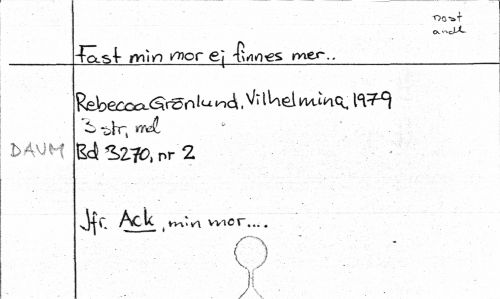 nost
andl
Fast min mor ej finnes mer..
Rebecca Grönlund, Vilhelmina, 1979
3 str, mel
DAUM Bd 3270, nr 2
Jfr. Ack, min mor....